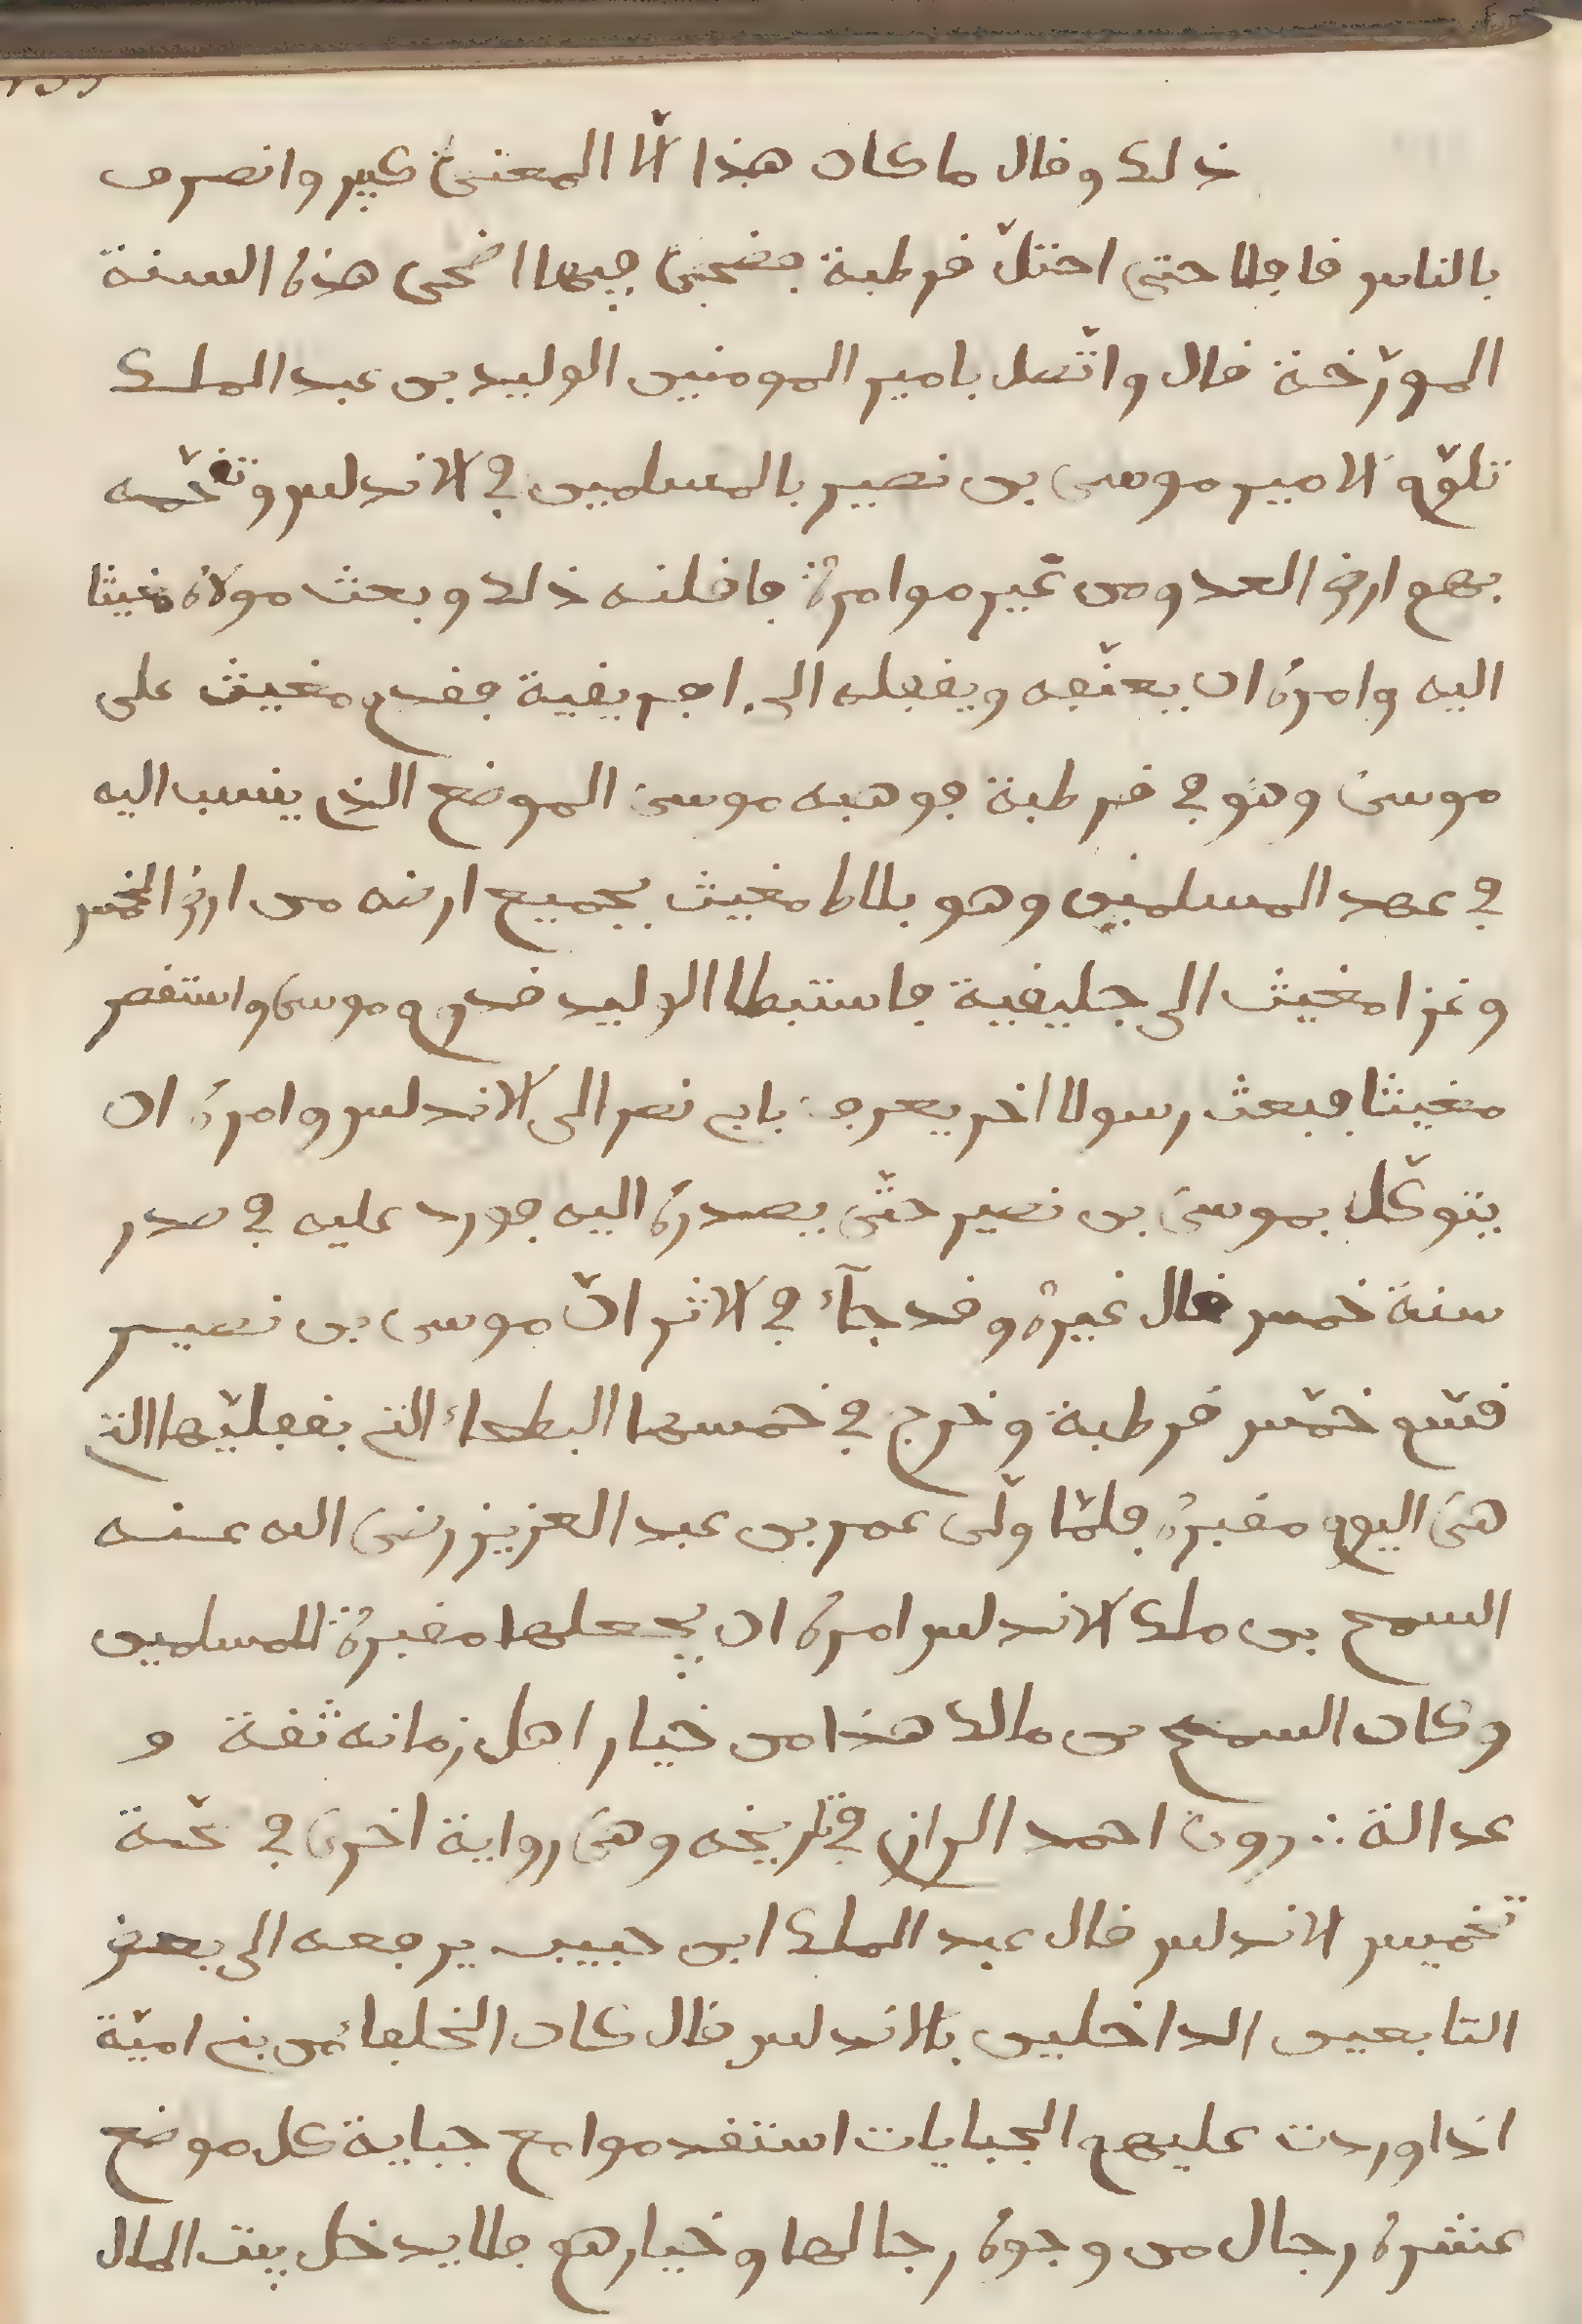 ذلك وقال ما كان هذا الا المعنى كبير وانصرف
بالناس قافلا حتى احتلّ قرطبة فضحى فيها اضحى هذه السنة
المورّخة قال واتّصل بامير المومنين الوليد بن عبد الملك
تلوّم الامير موسى بن نصير بالمسلمين في الاندلس وتقحّمه
بهم ارض العدو من غير موامرة فاقلقه ذلك وبعث مولاه مغيثا
اليه وامره ان يعنّفه ويقفله الى افريقية فقدم مغيث على
موسى وهو في قرطبة فوهبه موسى الموضع الذي ينسب اليه
في عهد المسلمين وهو بلاط مغيث بجميع ارضه من ارض الخمس
وغزا مغيث الى جليقية فاستبطا الوليد قدوم موسى واستقصر
مغيثا فبعث رسولا اخر يعرف بابي نصر الى الاندلس وامره ان
يتوكّل بموسى بن نصير حتّى يصدره اليه فورد عليه في صدر
سنة خمس قال غيره وقد جآء في الاثر انّ موسى بن نصير
قسّم خمّس قرطبة وخرج في خمسها البطحاء التي بقبليّها التي
هي اليوم مقبرة فلمّا ولّى عمر بن عبد العزيز رضى الله عنه
السمح بن ملك الاندلس امره ان يجعلها مقبرة للمسلمين
وكان السمح بن مالك هذا من خيار اهل زمانه ثقة و
عدالة ∴ روى احمد الرازي في تاريخه وهي رواية اخرى في
تخميس الاندلس قال عبد الملك ابن حبيب يرجعه الى بعض
التابعين الداخلين بالاندلس قال كان الخلفاء من بني اميّة
اذا وردت عليهم الجبايات استقدموا مع جباية كل موضع
عشرة رجال من وجوه رجالها وخيارهم فلا يدخل بيت المال